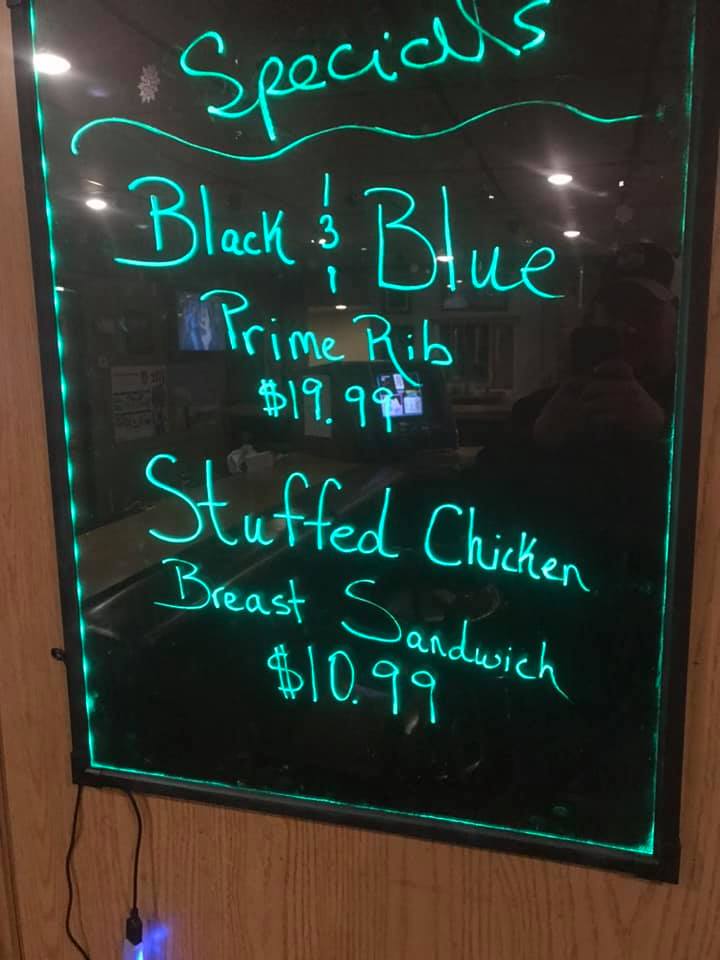 Specials
Black & Blue
Prime Rib
$19.99
Stuffed Chicken
Breast Sandwich
$10.99